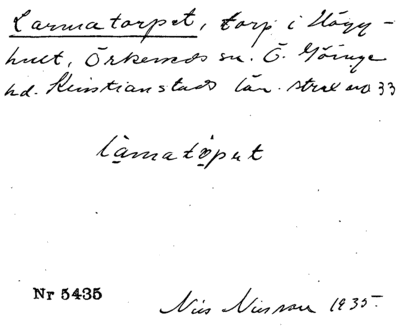 Larmatorpet, torp i Hägg-
hult, Örkeneds sn. Ö. Göinge
hd. Kristianstads län. strax no 33
làmatòpet
Nr 5435
Nils Nilsson 1935.